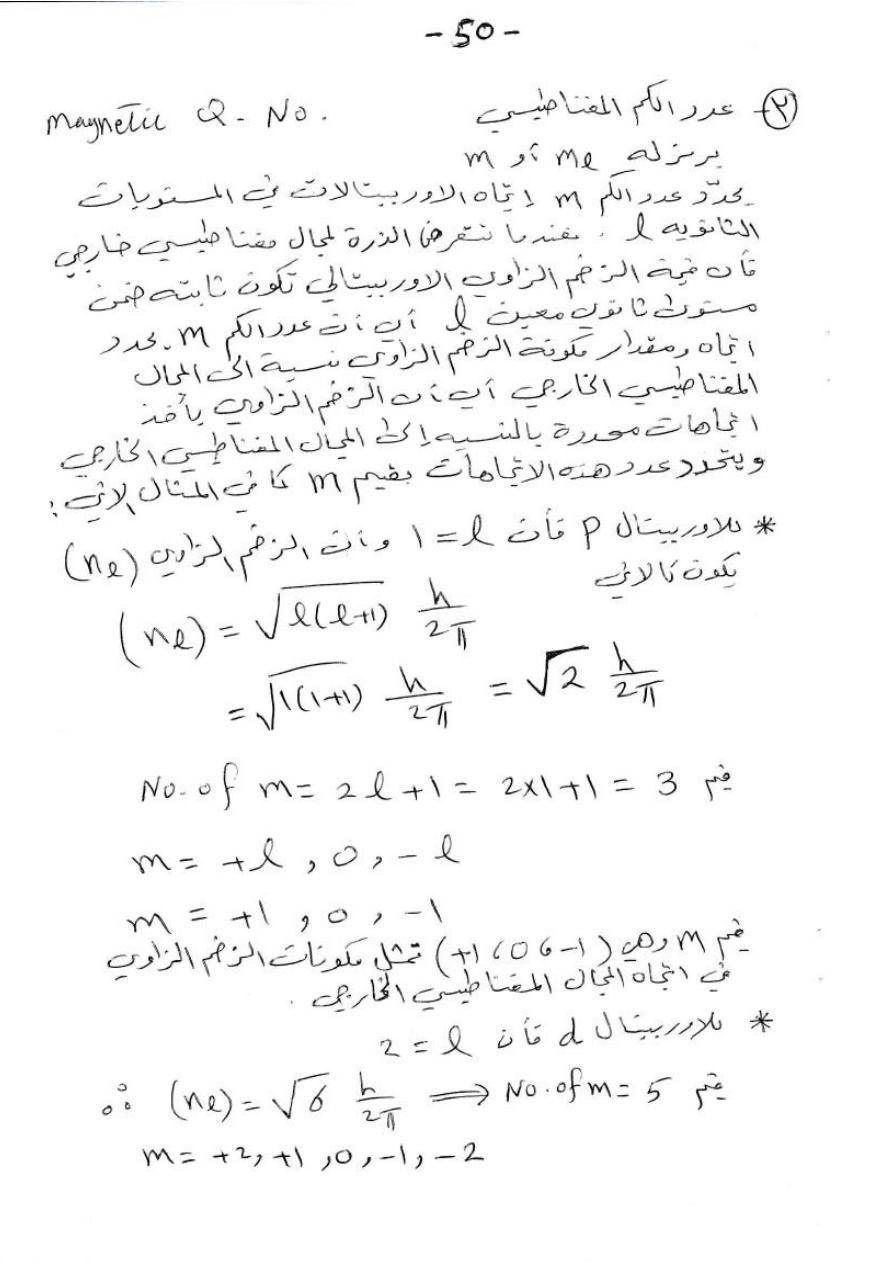 -50-
٢- عدد الكم المغناطيسي Magnetic Q. No.
يرمز له mℓ أو m
يحدّد عدد الكم m اتجاه الاوربيتالات في المستويات
الثانويه ℓ . فعندما تتعرض الذرة لمجال مغناطيسي خارجي
فأن قيمة الزخم الزاوي الاوربيتالي تكون ثابته ضمن
مستوى ثانوي معين ℓ أي أن عدد الكم m يحدد
اتجاه ومقدار مكونة الزخم الزاوي نسبة الى المجال
المغناطيسي الخارجي أي أن الزخم الزاوي يأخذ
اتجاهات محددة بالنسبه إلى المجال المغناطيسي الخارجي
ويتحدد عدد هذه الاتجاهات بقيم m كما في المثال الاتي :
* للاوربيتال p فأن ℓ = 1 وأن الزخم الزاوي (nℓ)
يكون كالاتي
(nℓ) = √ℓ(ℓ+1) h/2π
= √1(1+1) h/2π = √2 h/2π
No. of m = 2ℓ+1 = 2×1+1 = 3 قيم
m = +ℓ , 0 , -ℓ
m = +1 , 0 , -1
قيم m وهي (+1 ، 0 ، -1) تمثل مكونات الزخم الزاوي
في اتجاه المجال المغناطيسي الخارجي .
* للاوربيتال d فأن ℓ = 2
∴ (nℓ) = √6 h/2π ⟹ No. of m = 5 قيم
m = +2, +1, 0, -1, -2